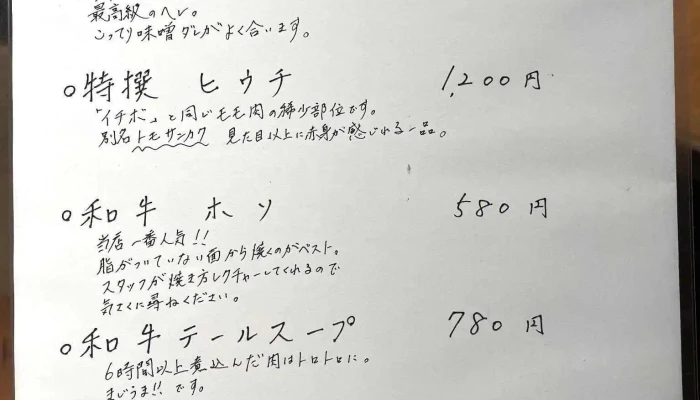 最高級のヘレ。
こってり味噌ダレがよく合います。
○特撰 ヒウチ 1,200円
「イチボ」と同じモモ肉の稀少部位です。
別名トモサンカク 見た目以上に赤身が感じれる一品。
○和牛 ホソ 580円
当店一番人気!!
脂がついていない面から焼くのがベスト。
スタッフが焼き方レクチャーしてくれるので
気さくに尋ねください。
○和牛テールスープ 780円
6時間以上煮込んだ肉はトロトロに。
まじうま!!です。